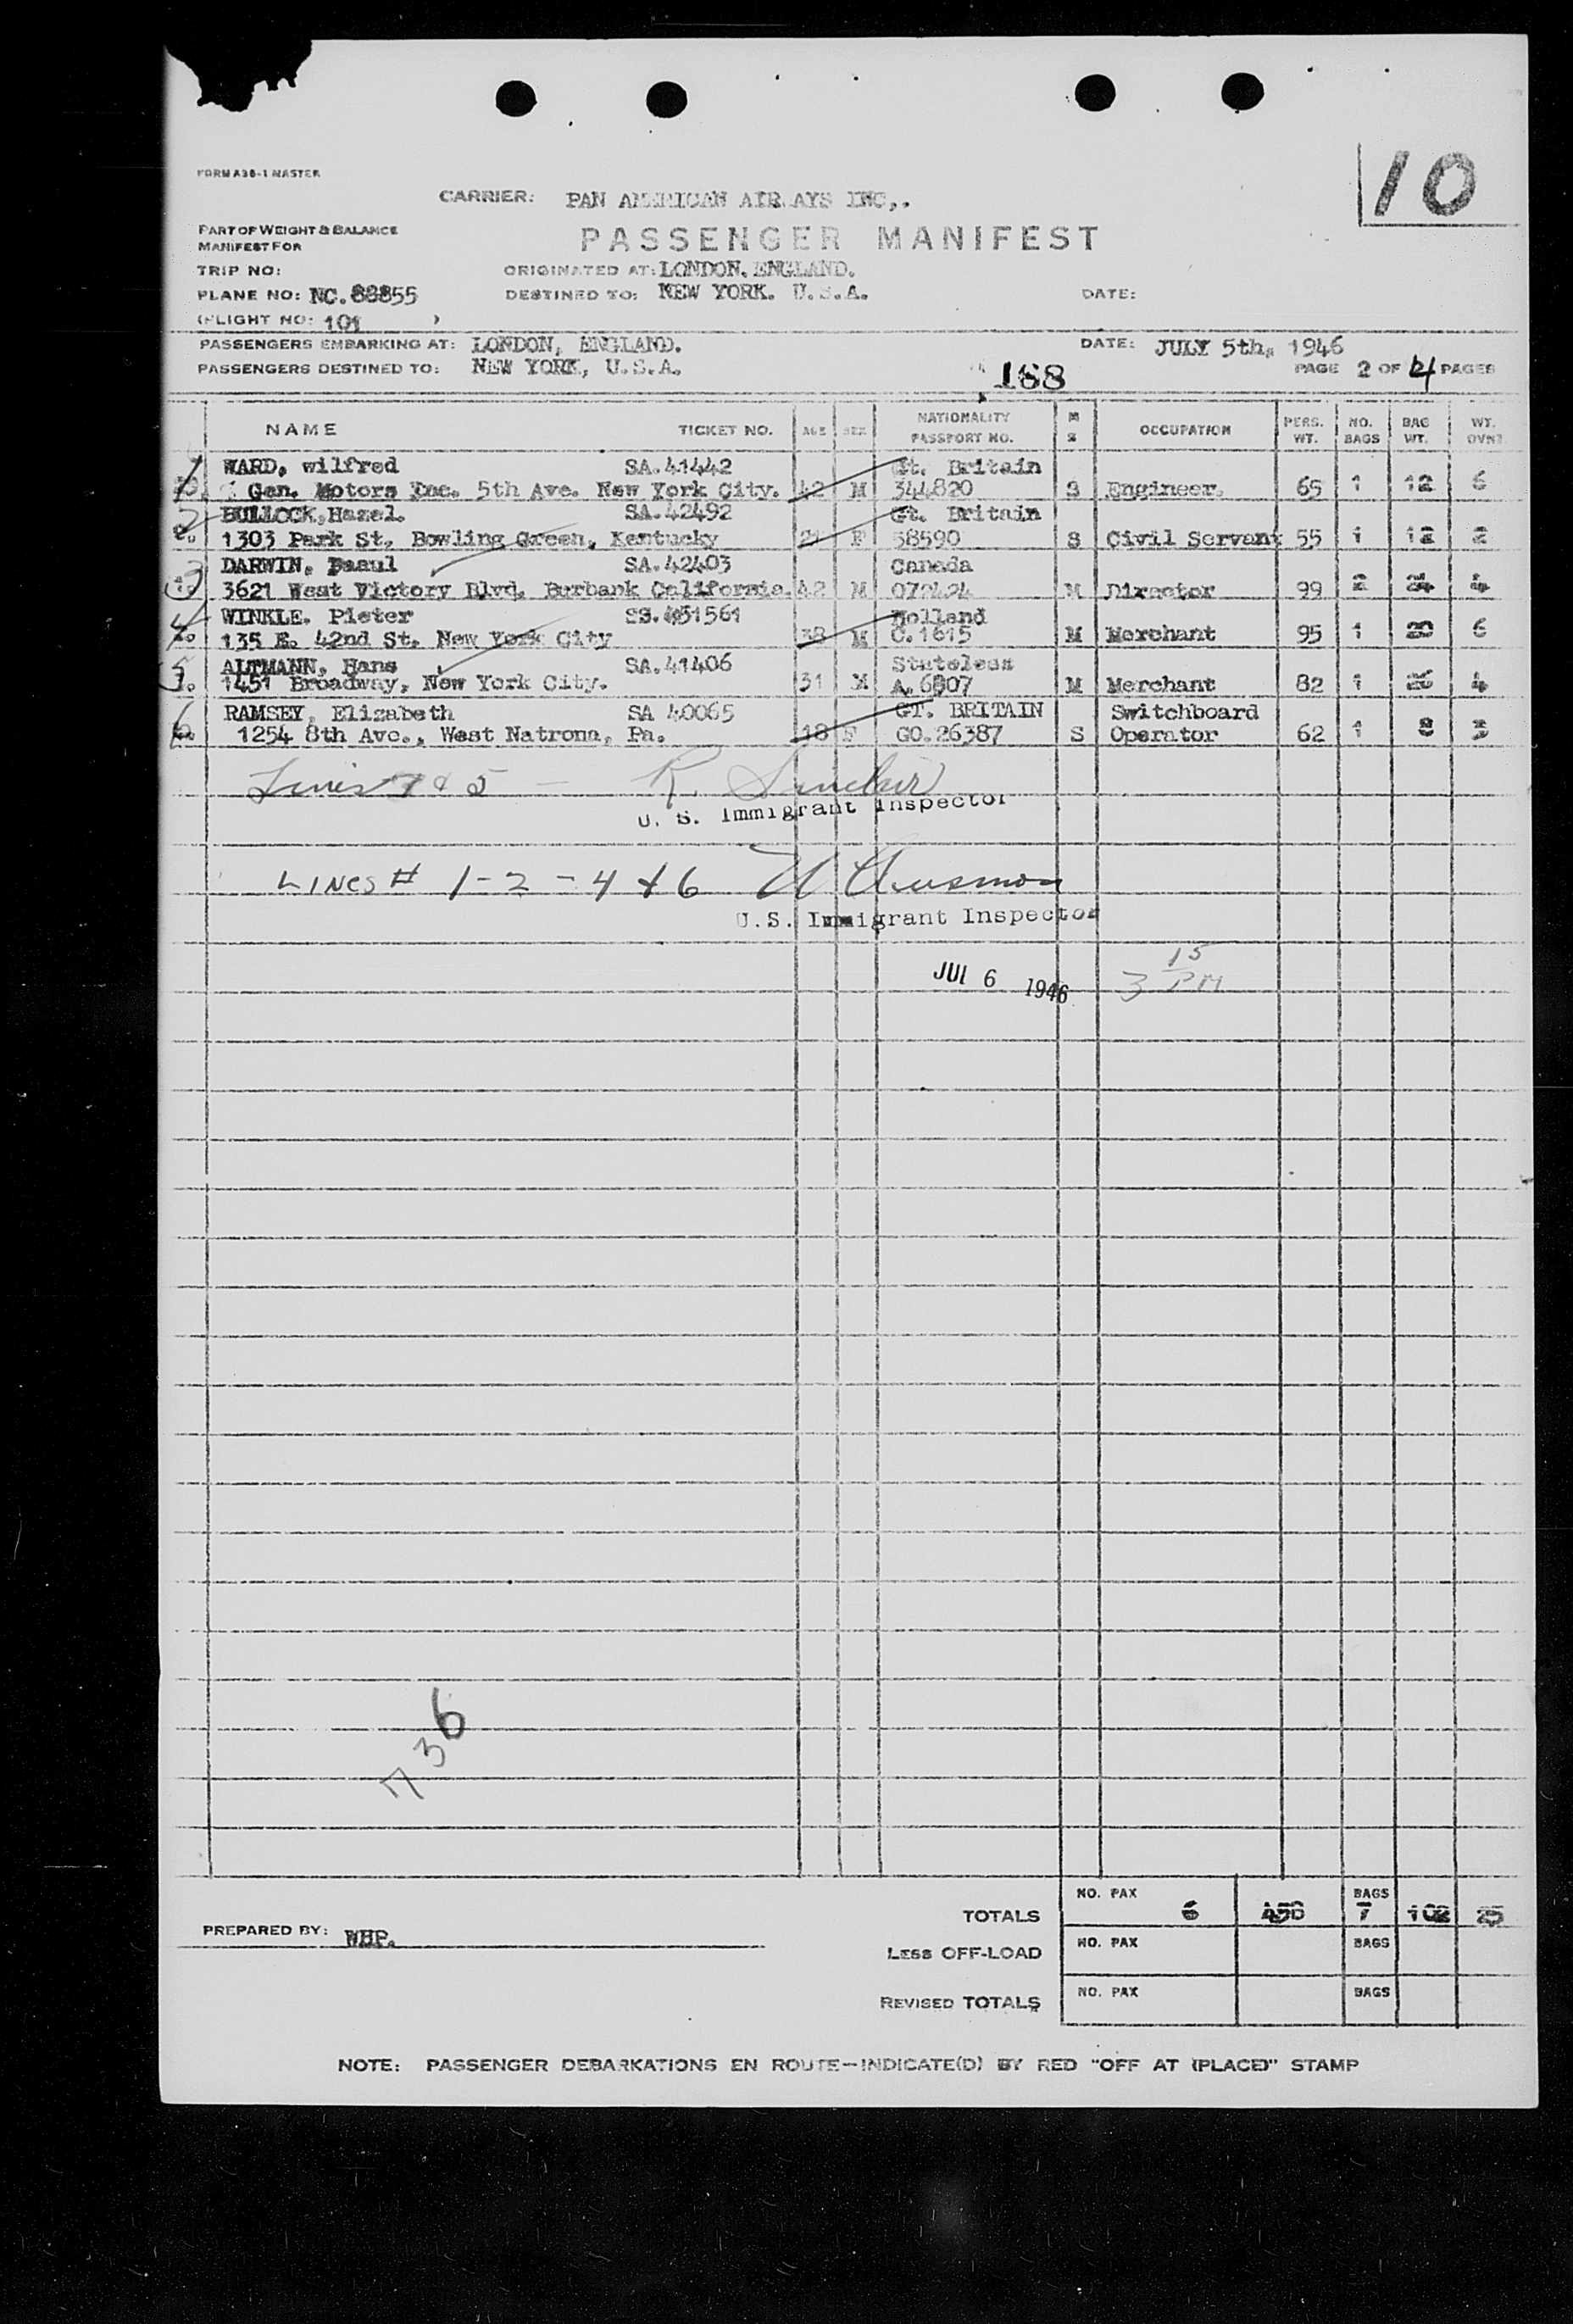 10
FORM A38-1 MASTER
CARRIER: PAN AMERICAN AIR AYS INC,.
PART OF WEIGHT & BALANCE
MANIFEST FOR
PASSENGER MANIFEST
TRIP NO: ORIGINATED AT: LONDON. ENGLAND.
PLANE NO: NC. 88855 DESTINED TO: NEW YORK. U.S.A. DATE:
(FLIGHT NO: 101 )
PASSENGERS EMBARKING AT: LONDON, ENGLAND. DATE: JULY 5th, 1946
PASSENGERS DESTINED TO: NEW YORK, U.S.A. 188 PAGE 2 OF 4 PAGES
NAME TICKET NO. AGE SEX NATIONALITY PASSPORT NO. M S OCCUPATION PERS. WT. NO. BAGS BAG WT. WT. OVNT
1 WARD, wilfred SA.41442 Gt. Britain
Gen. Motors Inc. 5th Ave. New York City. 42 M 344820 S Engineer. 65 1 12 6
2 BULLOCK, Hazel. SA.42492 Gt. Britain
1303 Park St. Bowling Green, Kentucky 21 F 58590 S Civil Servant 55 1 12 2
3 DARWIN, Paaul SA.42403 Canada
3621 West Victory Blvd. Burbank California. 42 M 072424 M Director 99 2 24 4
4 WINKLE. Pieter SS.451561 Holland
135 E. 42nd St. New York City 38 M C.1615 M Merchant 95 1 20 6
5 ALTMANN, Hans SA.41406 Stateless
1451 Broadway, New York City. 31 M A.6807 M Merchant 82 1 26 4
6 RAMSEY, Elizabeth SA 40065 GT. BRITAIN Switchboard
1254 8th Ave., West Natrona, Pa. 18 F GO.26387 S Operator 62 1 8 3
Lines 3 & 5 - R. Sinclair
U. S. Immigrant Inspector
LINES # 1-2-4 & 6
U.S. Immigrant Inspector
JUL 6 1946 3 15 PM
736
TOTALS NO. PAX 6 458 BAGS 7 102 25
PREPARED BY: WHP.
LESS OFF-LOAD NO. PAX BAGS
REVISED TOTALS NO. PAX BAGS
NOTE: PASSENGER DEBARKATIONS EN ROUTE—INDICATE(D) BY RED "OFF AT (PLACE)" STAMP